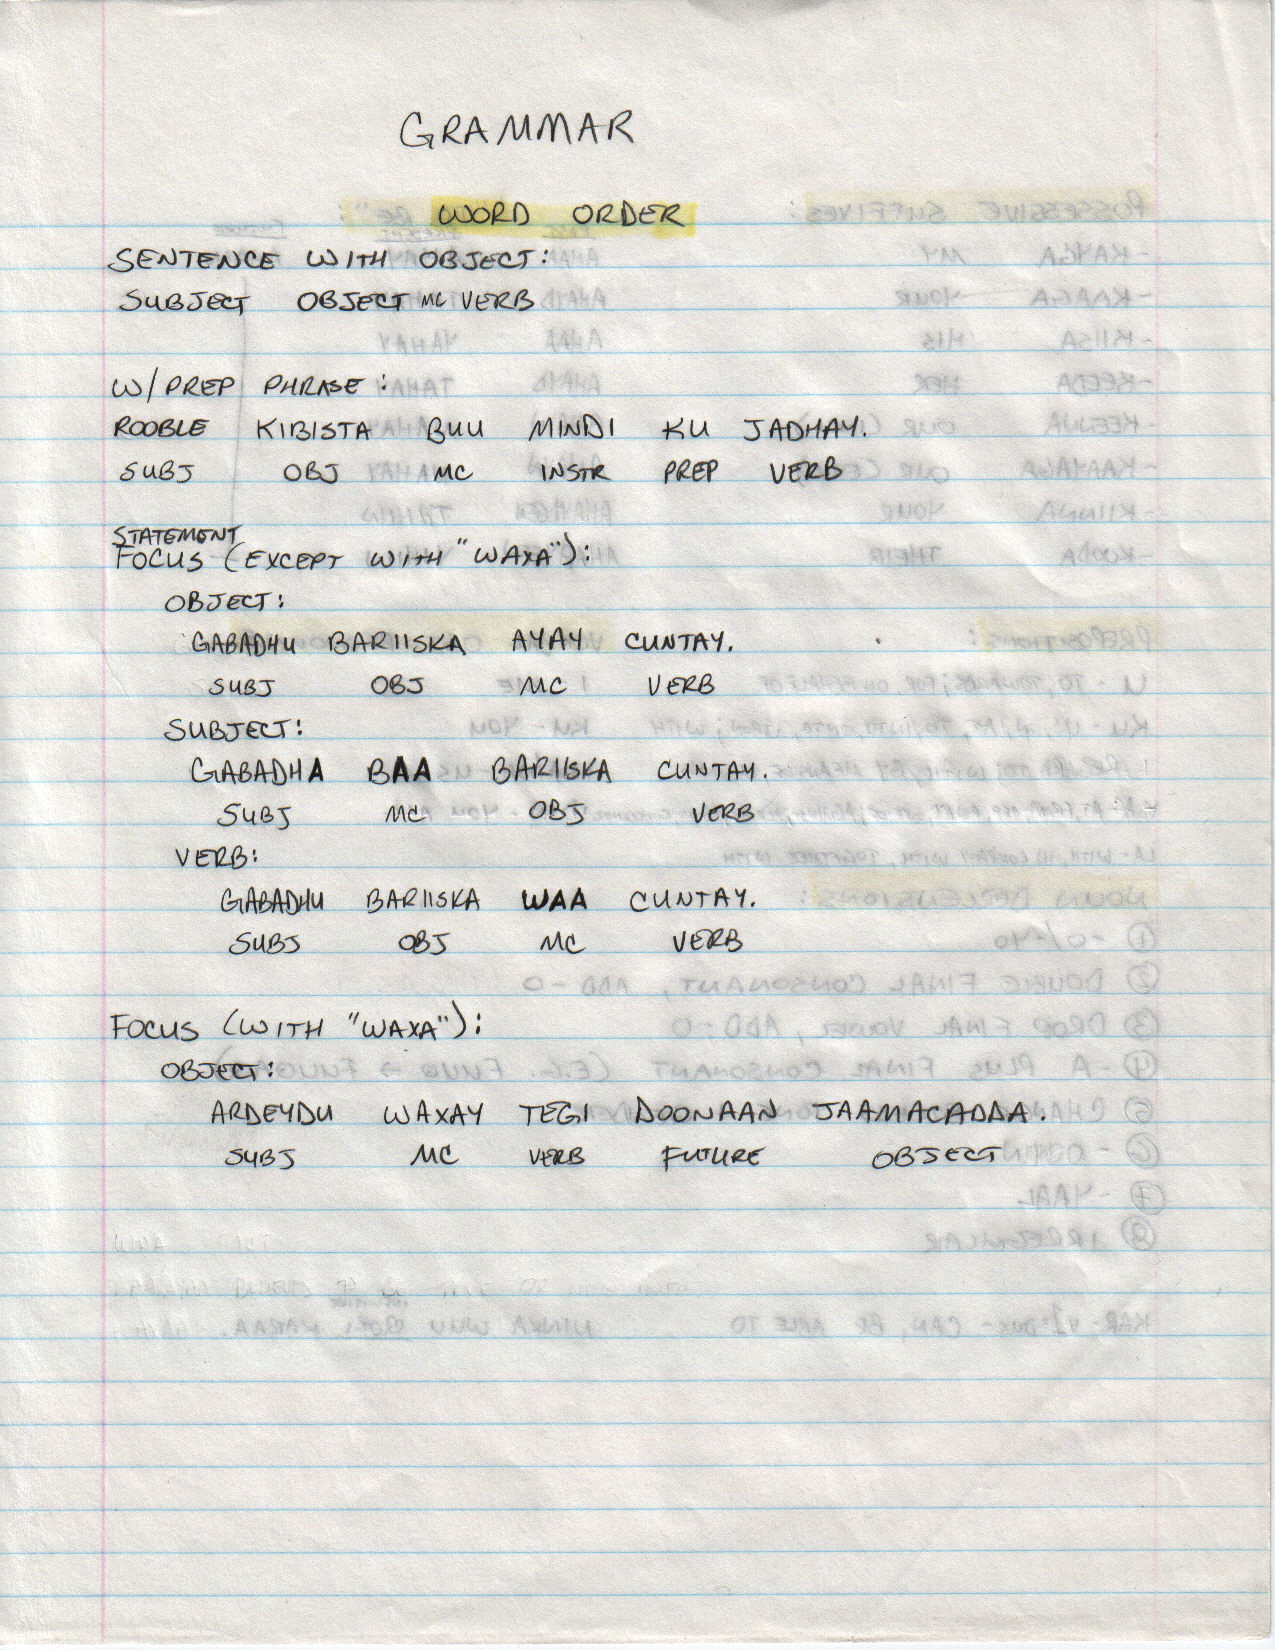 GRAMMAR
WORD ORDER
SENTENCE WITH OBJECT:
SUBJECT OBJECT MC VERB
W/PREP PHRASE:
ROOBLE KIBISTA BUU MINDI KU JADHAY.
SUBJ OBJ MC INSTR PREP VERB
STATEMENT
FOCUS (EXCEPT WITH "WAXA"):
OBJECT:
GABADHU BARIISKA AYAY CUNTAY.
SUBJ OBJ MC VERB
SUBJECT:
GABADHA BAA BARIISKA CUNTAY.
SUBJ MC OBJ VERB
VERB:
GABADHU BARIISKA WAA CUNTAY.
SUBJ OBJ MC VERB
FOCUS (WITH "WAXA"):
OBJECT:
ARDEYDU WAXAY TEGI DOONAAN JAAMACADDA.
SUBJ MC VERB FUTURE OBJECT